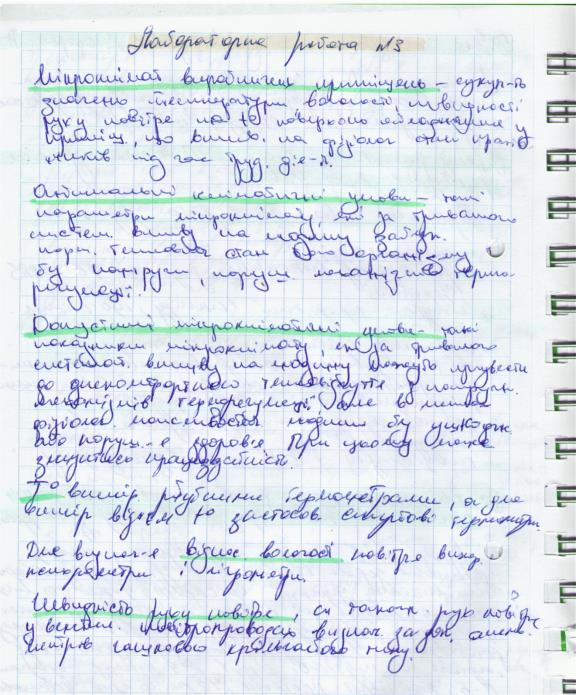 Лабораторна робота №3
Мікроклімат виробничих приміщень – сукуп-ть
значень температури вологості, швидкості
руху повітря та t° поверхонь обладнання у
приміщ., що вплив. на фізіолог. стан праців
ників під час труд. дія-ті.
Оптимальні кліматичні умови – такі
параметри мікроклімату які за тривалого
систем. впливу на людину забезп.
норм. тепловий стан організму
без напруги, поруш. механізмів термо-
регуляції.
Допустимі мікрокліматичні умови – такі
показники мікроклімату, які за тривалого
системат. впливу на людину можуть призвести
до дискомфортного тепловідчуття і
механізмів терморегуляції, але в межах
фізіолог. можливостей людини без ушкодж.
або поруш-я здоров'я. При цьому може
знизитись працездатність.
T° вимір. ртутними термометрами, а для
вимір. від'єм. t° застосов. спиртові термометри.
Для визнач-я віднос. вологості повітря викор.
психрометри і гігрометри.
Швидкість руху повітря, руху повітря
у вентил. повітропроводах визнач. за
метрів чашкового крильчатого типу.